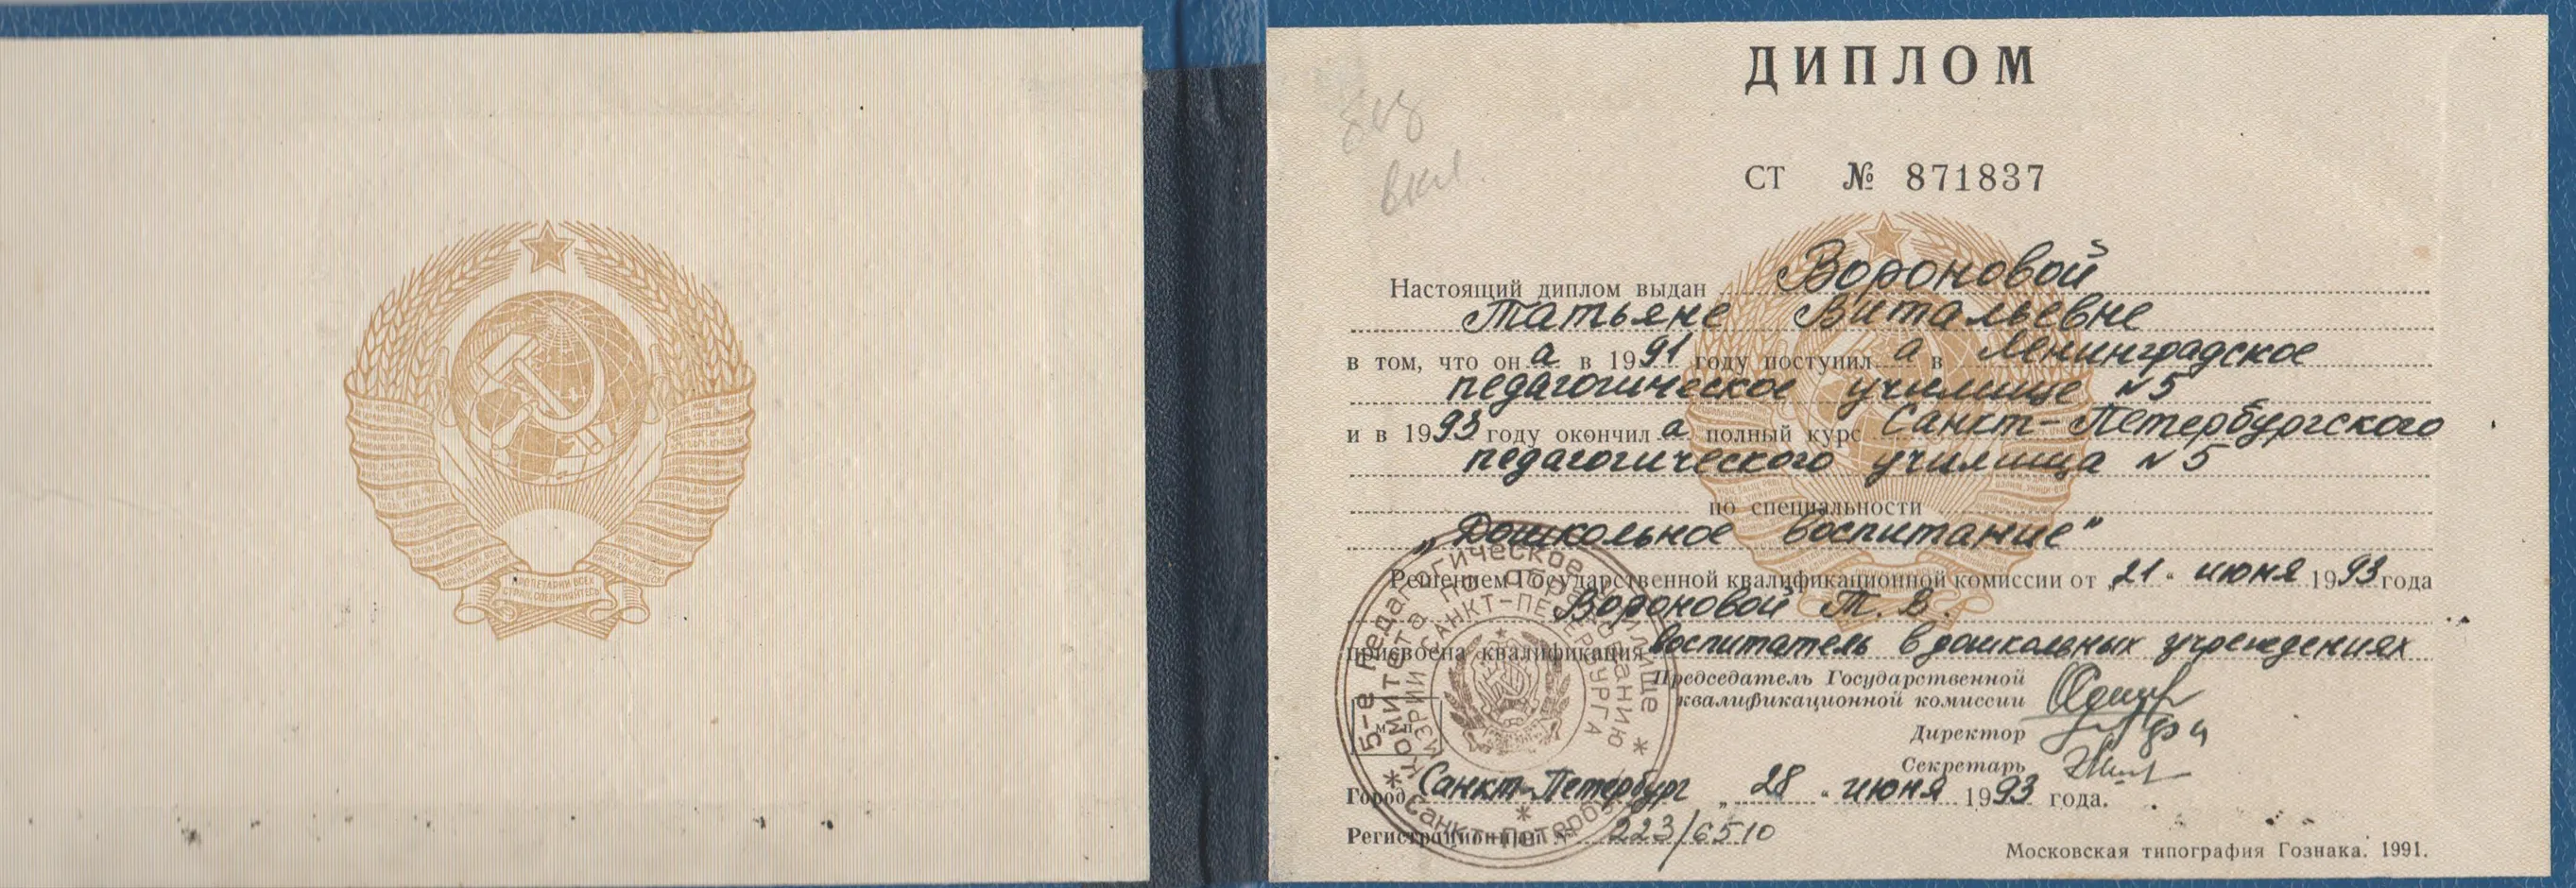 ПРОЛЕТАРИИ ВСЕХ
СТРАН, СОЕДИНЯЙТЕСЬ!
ДИПЛОМ
без
вкл.
СТ № 871837
Настоящий диплом выдан Вороновой
Татьяне Витальевне
в том, что он а в 1991 году поступил а в Ленинградское
педагогическое училище №5
и в 1993 году окончил а полный курс Санкт-Петербургского
педагогического училища №5
по специальности
„Дошкольное воспитание"
Решением Государственной квалификационной комиссии от „21" июня 1993 года
Вороновой Т. В.
присвоена квалификация воспитатель в дошкольных учреждениях
Председатель Государственной
квалификационной комиссии
Директор
Секретарь
М. П.
Город Санкт-Петербург „28" июня 1993 года.
Регистрационный № 223/6510
Московская типография Гознака. 1991.
5-е педагогическое училище * Санкт-Петербург *
Комитета по образованию
мэрии Санкт-Петербурга